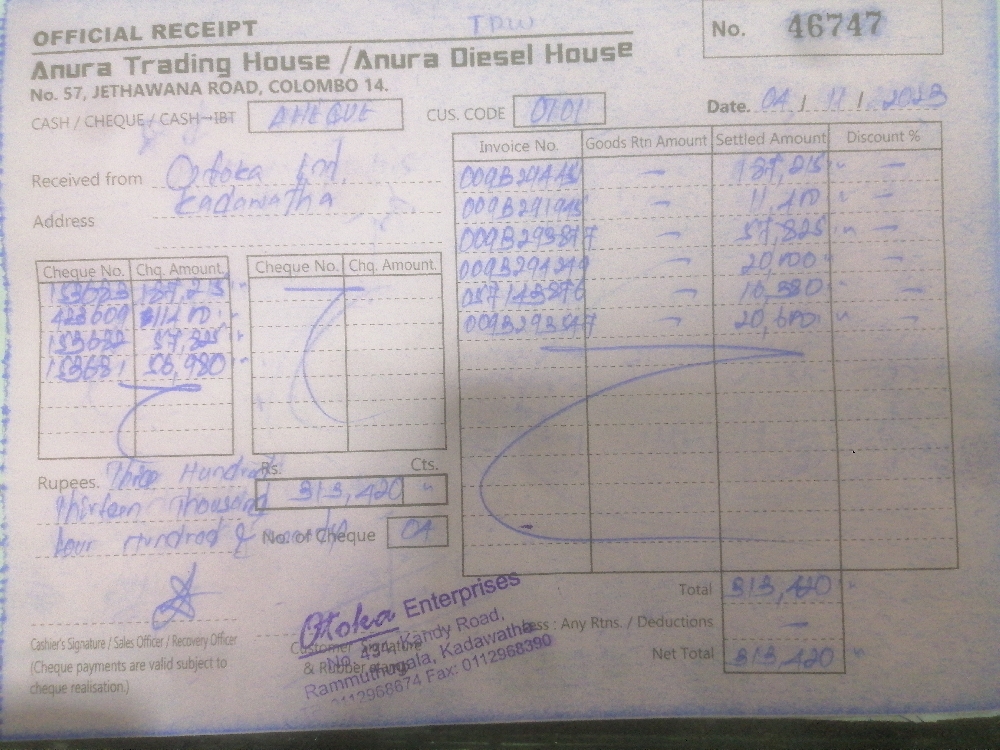 TDW
OFFICIAL RECEIPT
No. 46747
Anura Trading House / Anura Diesel House
No. 57, JETHAWANA ROAD, COLOMBO 14.
CASH / CHEQUE / CASH-IBT CHEQUE CUS. CODE 0101 Date. 04 / 11 / 2023
Received from Otoka Ent.
Address Kadawatha
Invoice No. Goods Rtn Amount Settled Amount Discount %
— 187,215 —
— —
009B293877 — 57,825 —
— 20,000 —
— 16,380 —
009B293547 — 20,600 —
Cheque No. Chq. Amount. Cheque No. Chq. Amount.
187,215
423609
153632 57,825
153681 56,980
Rupees. Three Hundred
Thirteen Thousand
Four Hundred & Twenty
Rs. Cts.
313,420
No. of Cheque 04
Total 313,420
Less : Any Rtns. / Deductions —
Net Total 313,420
Cashier's Signature / Sales Officer / Recovery Officer
(Cheque payments are valid subject to
cheque realisation.)
Customer Signature
& Rubber stamp
Otoka Enterprises
No. 494, Kandy Road,
Rammuthugala, Kadawatha
0112968674 Fax: 0112968390